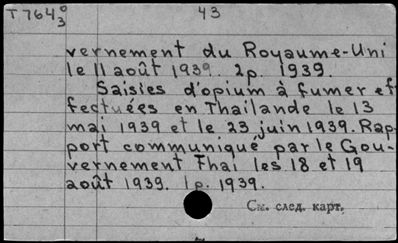 T764⁰₃ 43
vernement du Royaume-Uni
le 11 août 1939. 2p. 1939.
Saisies d'opium à fumer ef
fectuées en Thaïlande le 13
mai 1939 et le 23 juin 1939. Rap
port communiqué par le Gou-
vernement Thai les 18 et 19
août 1939. 1p. 1939.
См. след. карт.